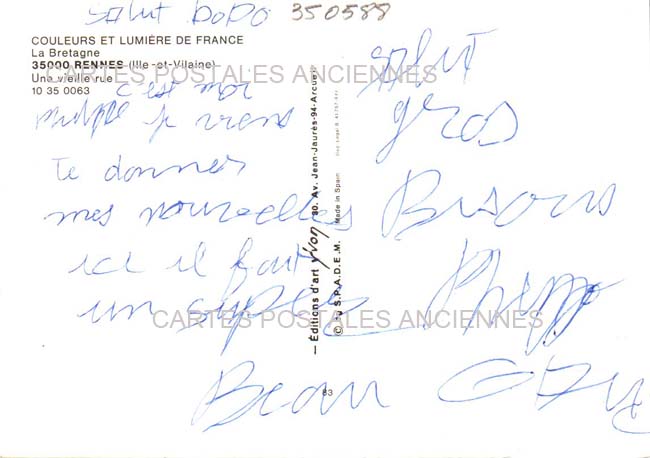 salut DODO 350588
COULEURS ET LUMIÈRE DE FRANCE
La Bretagne
35000 RENNES (Ille-et-Vilaine)
Une vieille rue
10 35 0063
CARTES POSTALES ANCIENNES
c'est moi
je viens
te donner
mes nouvelles
ici il fait
un
Beau
salut
gros
Bisous
— Éditions d'art Yvon, 30, Av. Jean-Jaurès-94-Arcueil
Made in Spain
S.P.A.D.E.M.
CARTES POSTALES ANCIENNES
83